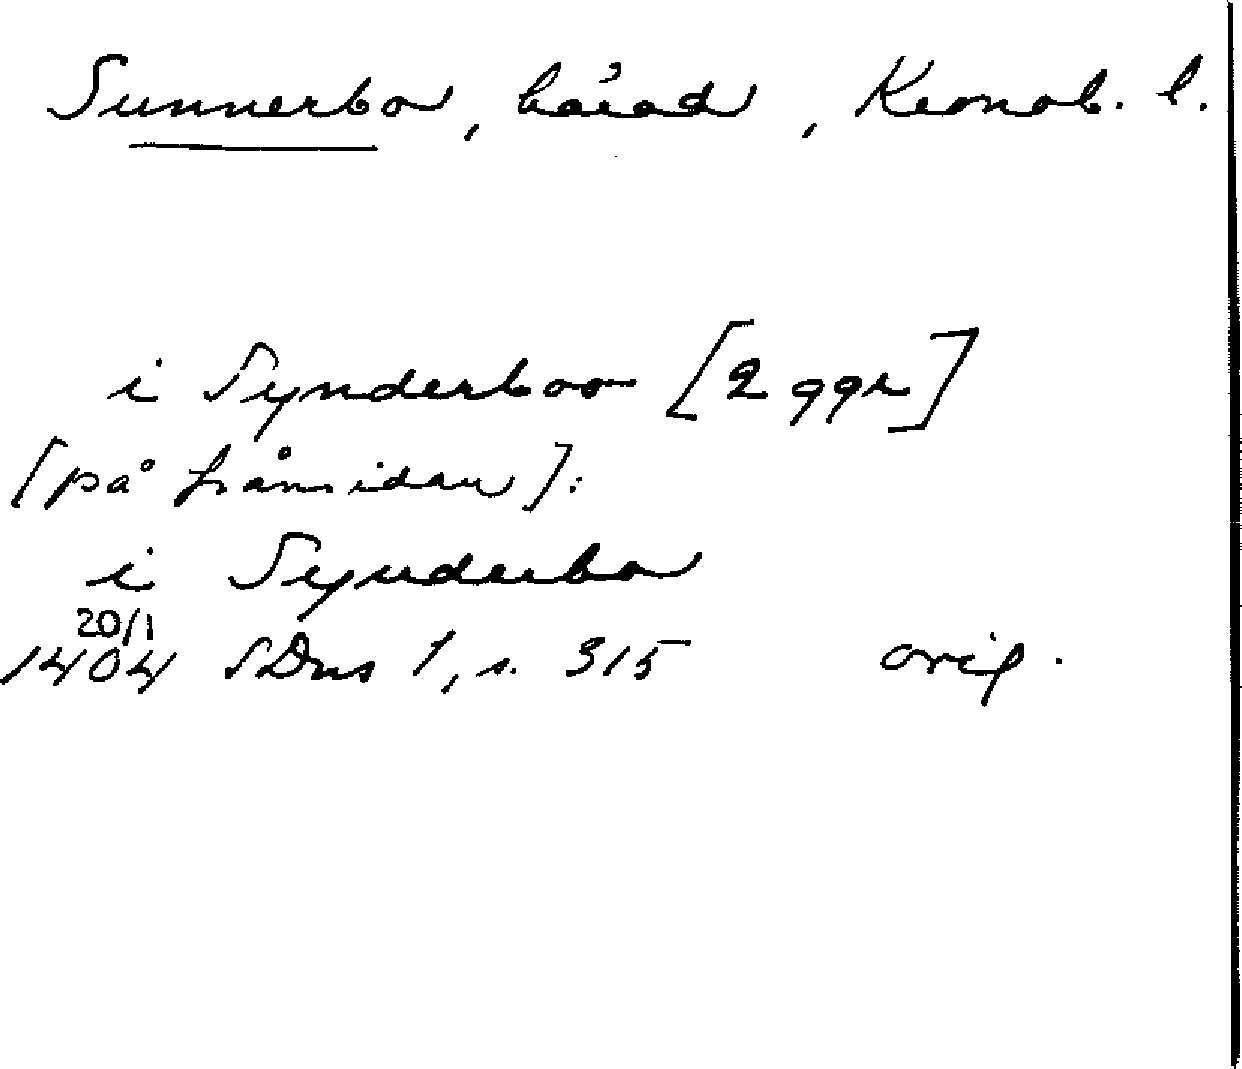 Sunnerbo, härad, Kronob. l.
i Synderboo [2 ggr]
[på frånsidan]:
i Synderbo
20/1
1404 SDns 1, s. 315 orig.